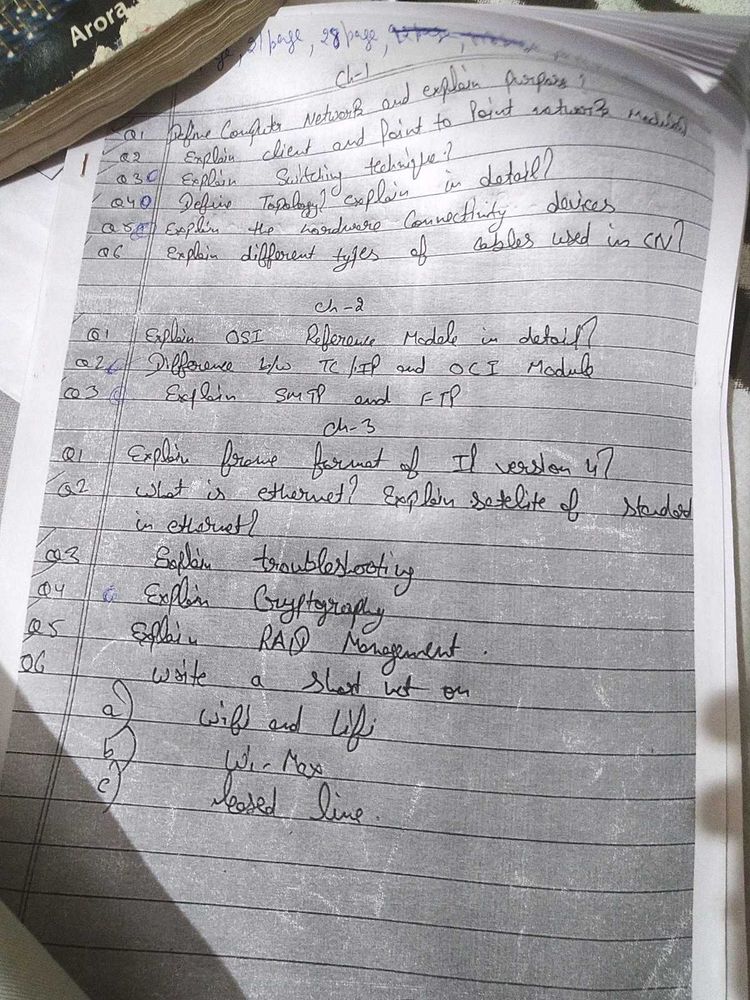 Arora
, 21 page, 28 page,
Ch-1
Q1 Define Computer Network and explain purpose?
Q2 Explain client and Point to Point network Models
Q3 Explain Switching technique?
Q4 Define Topology? explain in detail?
Q5 Explain the hardware Connectivity devices
Q6 Explain different types of cables used in CN?
Ch-2
Q1 Explain OSI Reference Modele in detail?
Q2 Difference b/w TC/IP and OCI Module
Q3 Explain SMTP and FTP
Ch-3
Q1 Explain frame format of IP version 4?
Q2 What is ethernet? Explain satelite of standard
in ethernet?
Q3 Explain troubleshooting
Q4 Explain Cryptography
Q5 Explain RAID Management.
Q6 write a short not on
a) wifi and Lifi
b) Wi-Max
c) leased line.